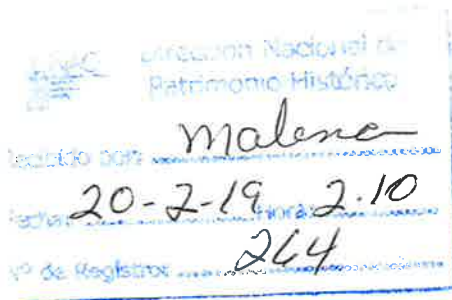 Dirección Nacional de
Patrimonio Histórico
Recibido por: Malena
Fecha: 20-2-19 Hora: 2.10
Nº de Registro: 264